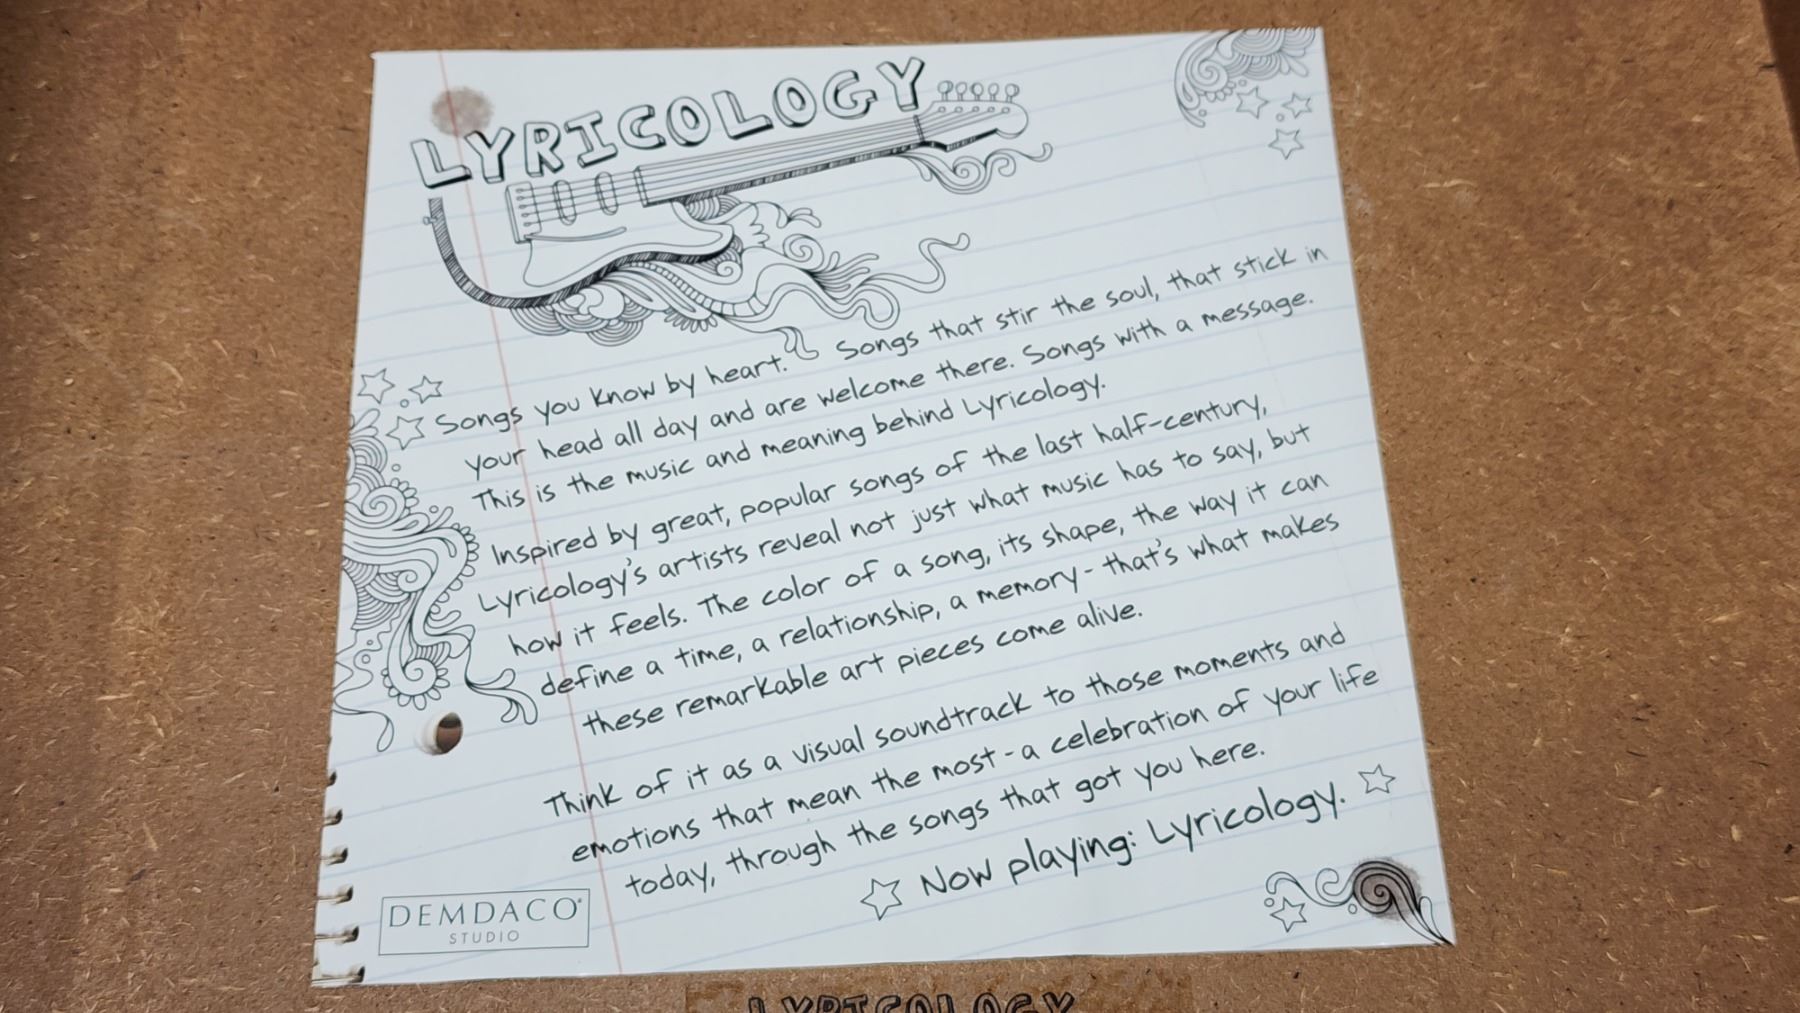 LYRICOLOGY
Songs you know by heart. Songs that stir the soul, that stick in
your head all day and are welcome there. Songs with a message.
This is the music and meaning behind Lyricology.
Inspired by great, popular songs of the last half-century,
Lyricology's artists reveal not just what music has to say, but
how it feels. The color of a song, its shape, the way it can
define a time, a relationship, a memory - that's what makes
these remarkable art pieces come alive.
Think of it as a visual soundtrack to those moments and
emotions that mean the most - a celebration of your life
today, through the songs that got you here.
Now playing: Lyricology.
DEMDACO®
STUDIO
LYRICOLOGY